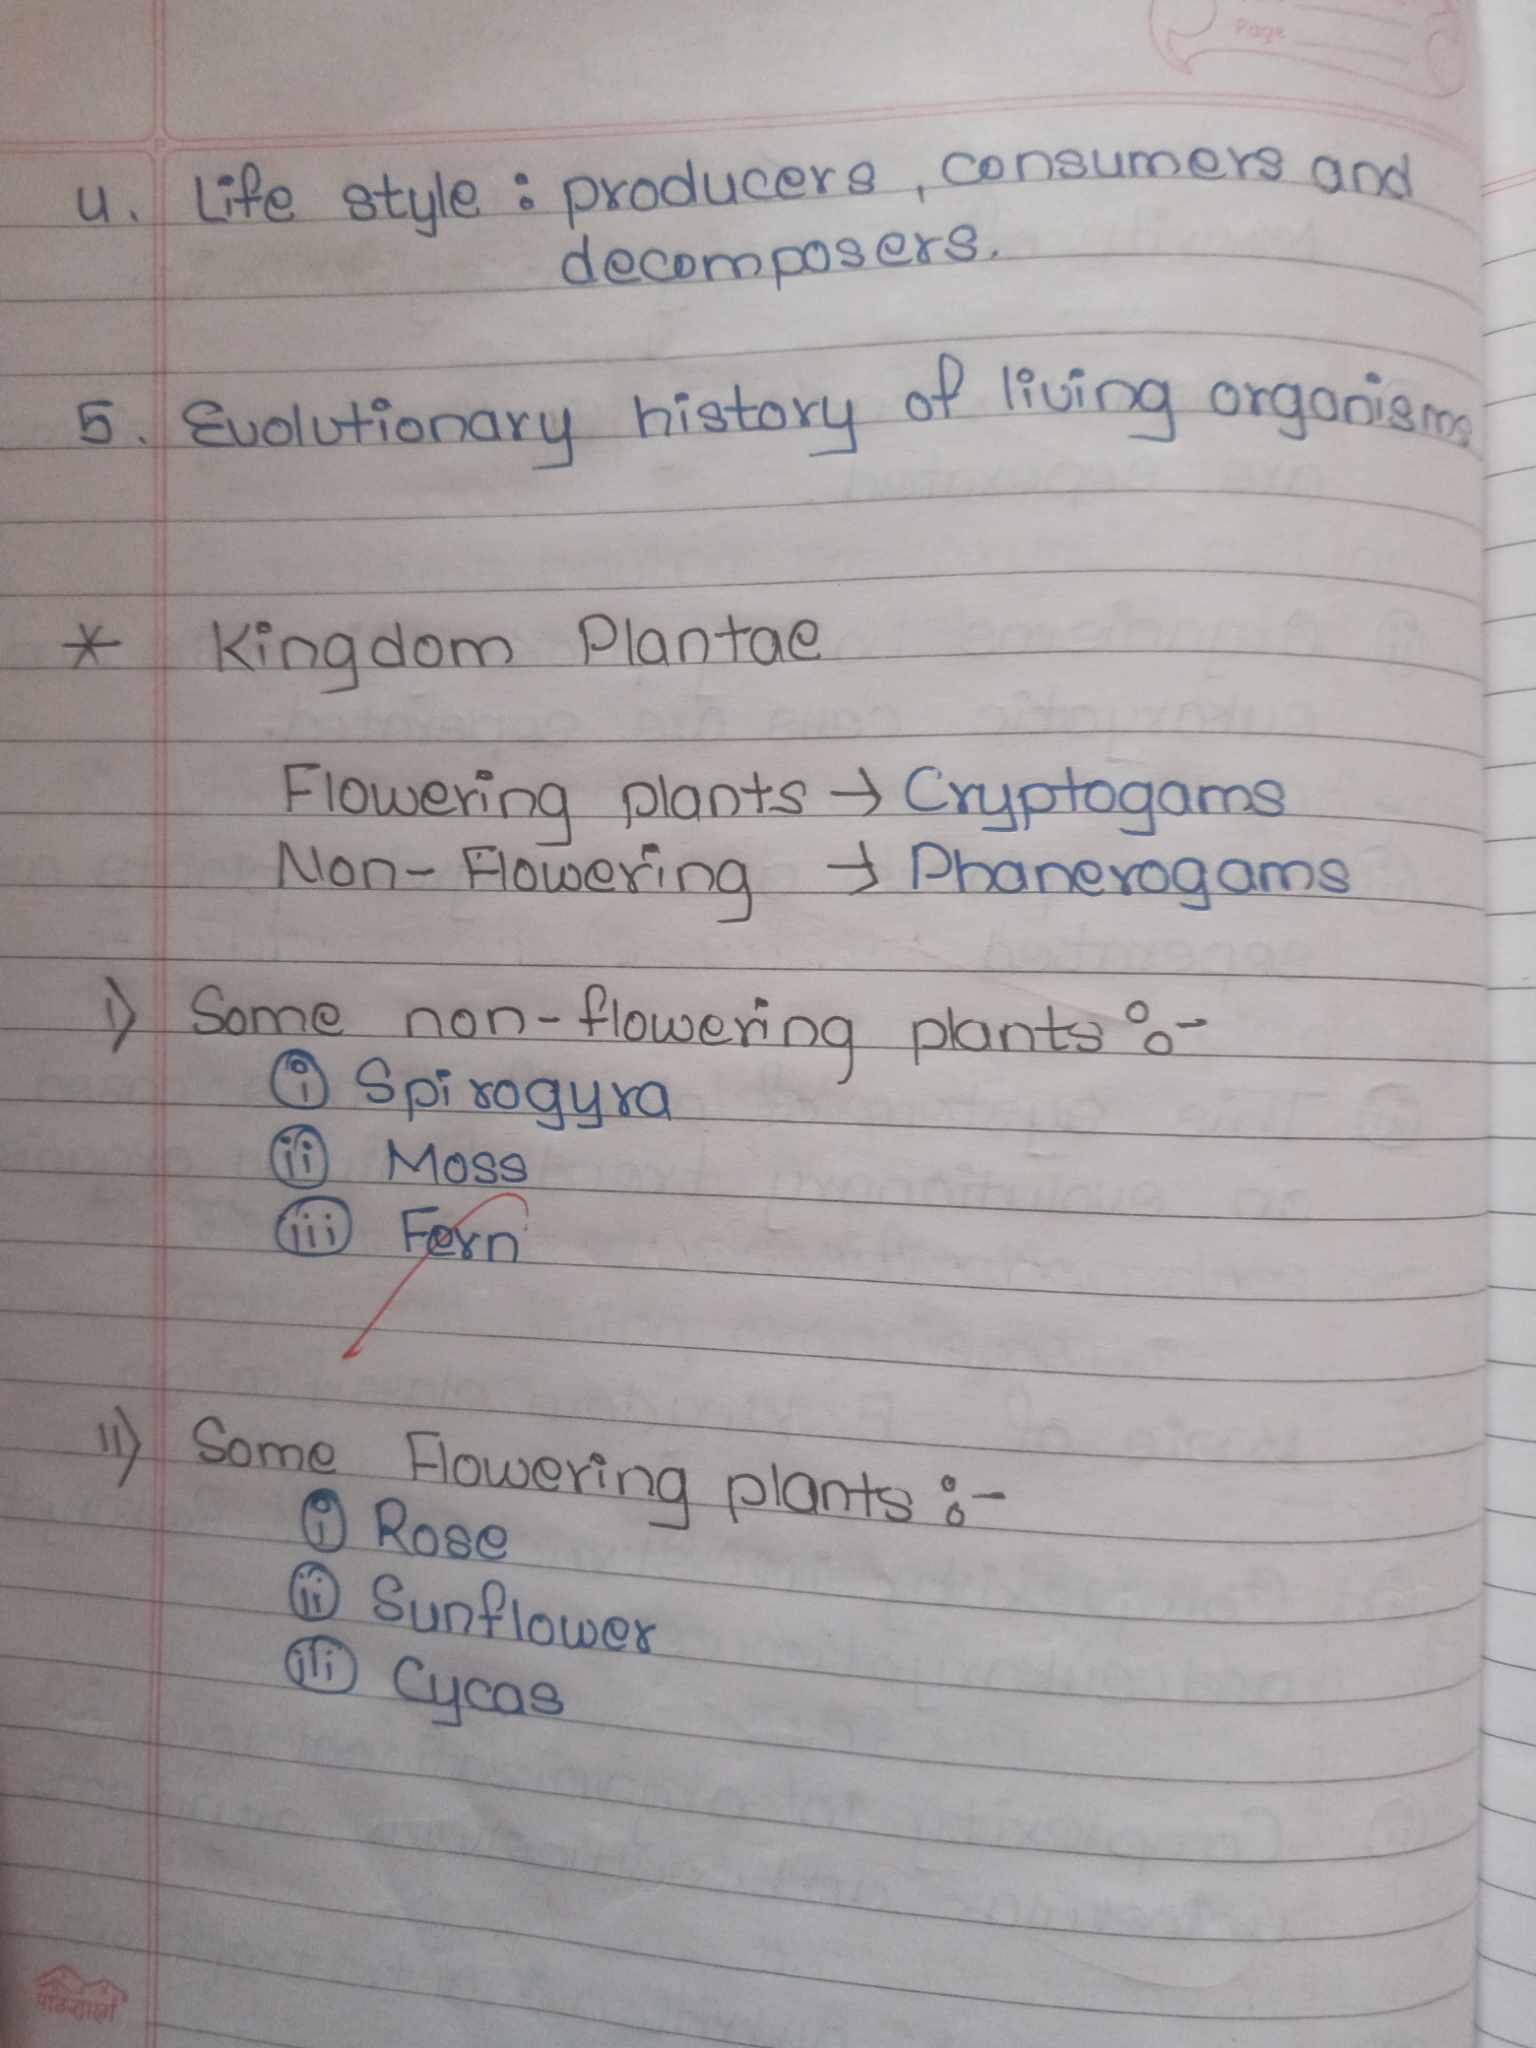 Page
4. Life style : producers, consumers and
decomposers.
5. Evolutionary history of living organisms
* Kingdom Plantae
Flowering plants → Cryptogams
Non-Flowering → Phanerogams
i) Some non-flowering plants :-
(i) Spirogyra
(ii) Moss
(iii) Fern
ii) Some Flowering plants :-
(i) Rose
(ii) Sunflower
(iii) Cycas